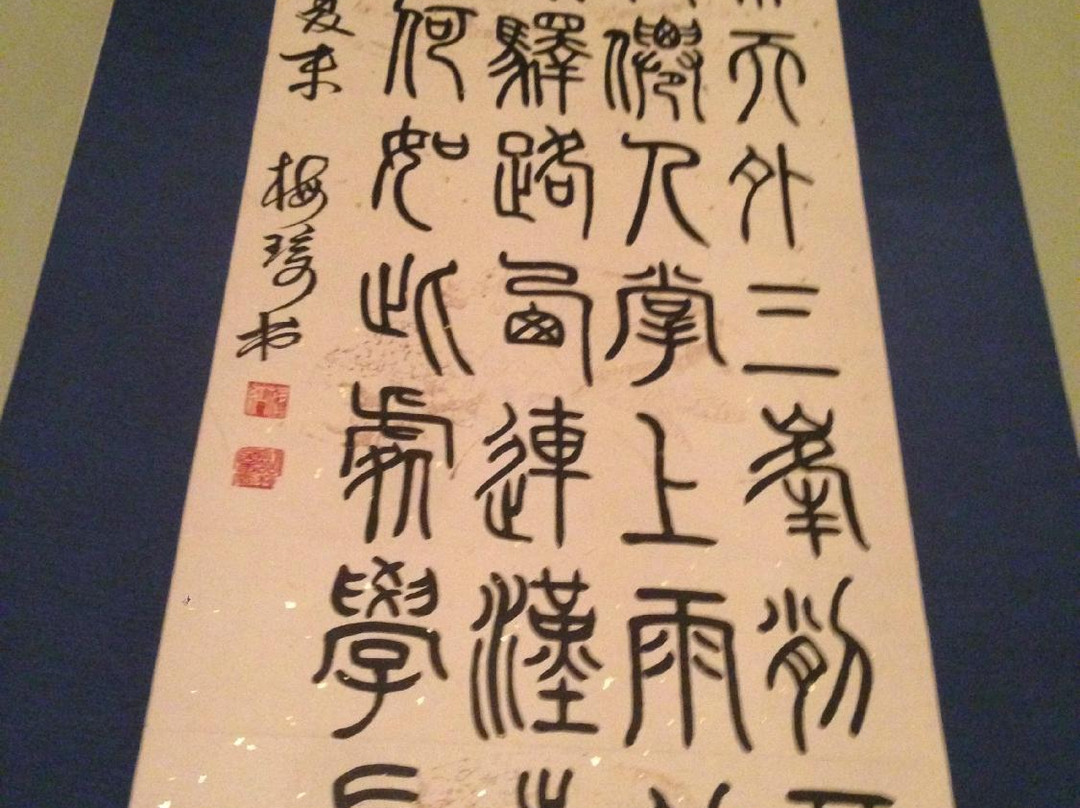 天外三峯削
僊人掌上雨
驛路西連漢
何如此處學
夏末 梅琦书